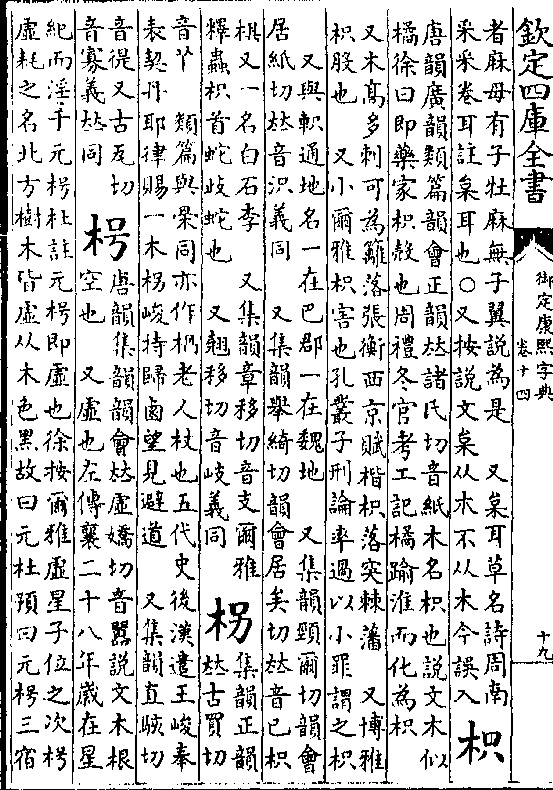 欽定四庫全書
御定康熙字典
卷十四
十九
者麻母有子牡麻無子翼說為是 又枲耳草名詩周南
采采卷耳註枲耳也○又按說文枲从𣎳不从木今誤入
枳
唐韻廣韻類篇韻會正韻𠀤諸氏切音紙木名枳也說文木似
橘徐曰即藥家枳殼也周禮冬官考工記橘踰淮而化為枳
又木高多刺可為籬落張衡西京賦楷枳落突棘藩 又博雅
枳股也 又小爾雅枳害也孔叢子刑論率過以小罪謂之枳
又與軹通地名一在巴郡一在魏地 又集韻頸爾切韻會
居紙切𠀤音沢義同 又集韻舉綺切韻會居矣切𠀤音已枳
椇又一名白石李 又集韻章移切音支爾雅
釋蟲枳首蛇歧蛇也 又翹移切音岐義同
枴
集韻正韻
𠀤古買切
音𦫳 類篇與同亦作柺老人杖也五代史後漢遣王峻奉
表契丹耶律賜一木枴峻持歸鹵望見避道 又集韻直駭切
音徥又古瓦切
音寡義𠀤同
枵
唐韻集韻韻會𠀤虛嬌切音囂說文木根
空也 又虛也左傳襄二十八年歲在星
紀而淫于元枵杜註元枵即虛也徐按爾雅虛星子位之次枵
虛耗之名北方樹木皆虛从木色黑故曰元杜預曰元枵三宿